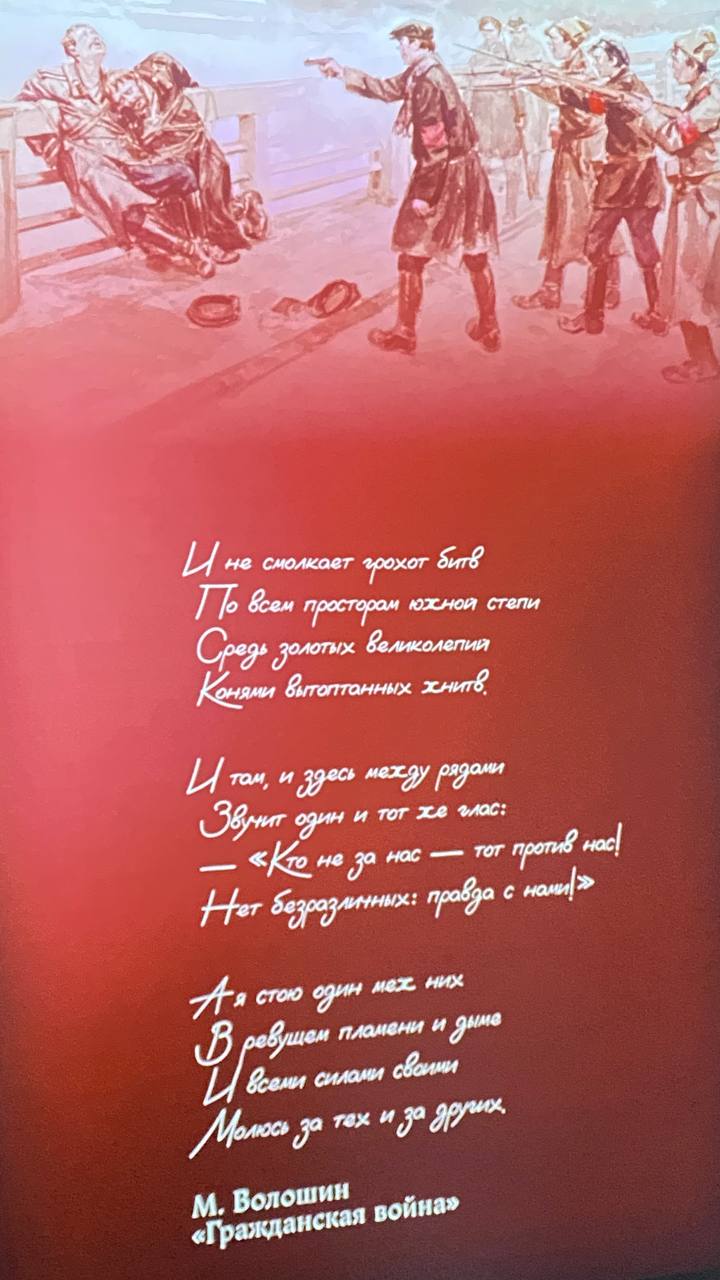 И не смолкает грохот битв
По всем просторам южной степи
Средь золотых великолепий
Конями вытоптанных жнитв.
И там, и здесь между рядами
Звучит один и тот же глас:
— «Кто не за нас — тот против нас!
Нет безразличных: правда с нами!»
А я стою один меж них
В ревущем пламени и дыме
И всеми силами своими
Молюсь за тех и за других.
М. Волошин
«Гражданская война»